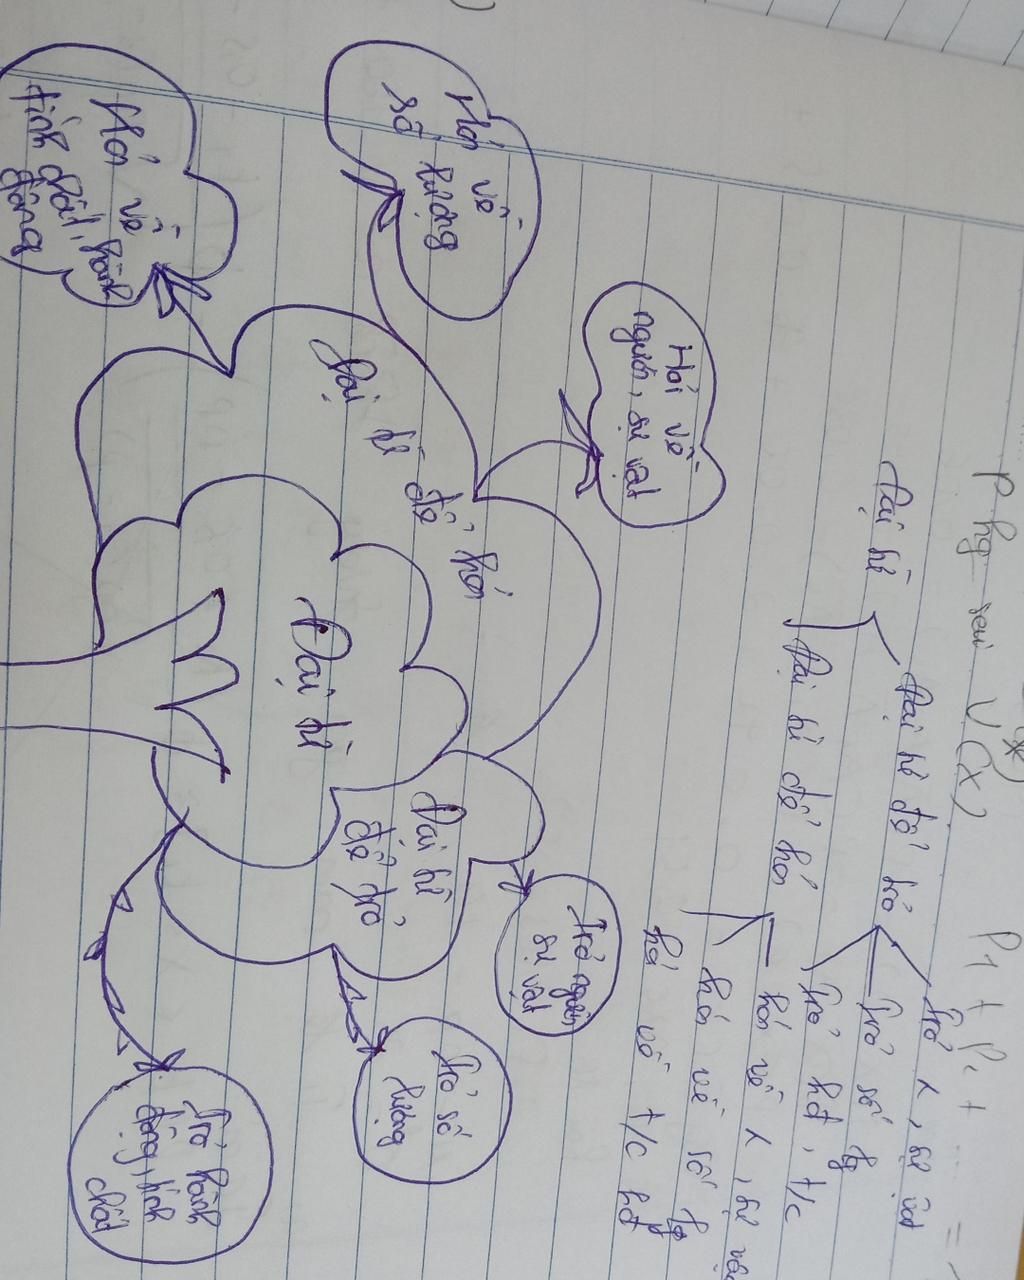 Phg sai V(x)
P1 + P2 + ... =
Đại từ
Đại từ để trỏ
Trỏ ng, sự vật
Trỏ số lg
Trỏ hđ, t/c
Đại từ để hỏi
hỏi về ng, sự vật
hỏi về số lg
hỏi về t/c hđ
Hỏi về
người, sự vật
Hỏi về
số lượng
Hỏi về
tính chất, hành
động
Đại từ để hỏi
Đại từ
Đại từ
để trỏ
Trỏ người
sự vật
Trỏ số
lượng
Trỏ hành
động, tính
chất